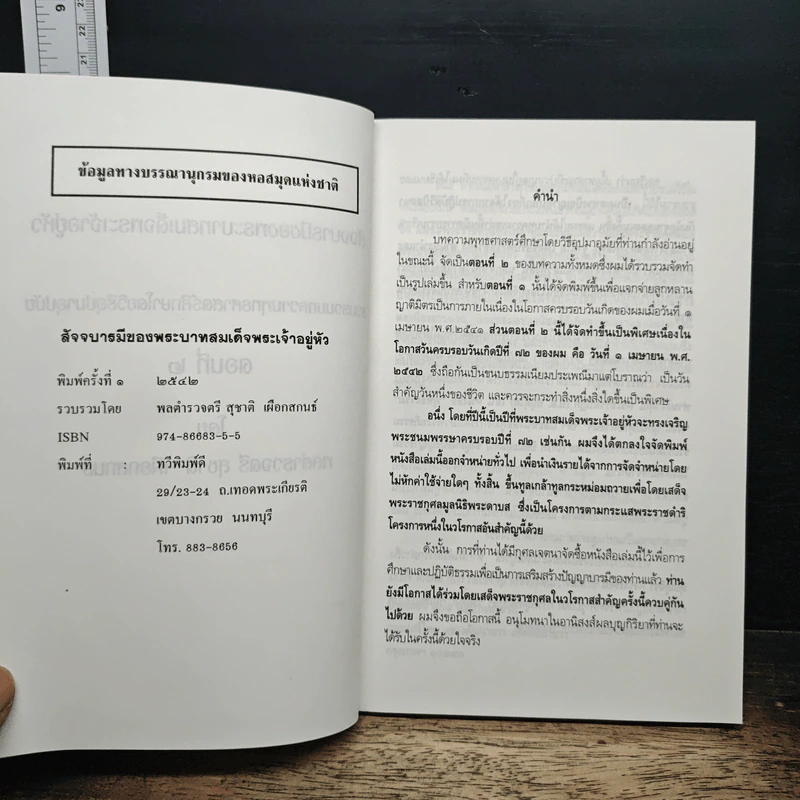 9
23
22
21
ข้อมูลทางบรรณานุกรมของหอสมุดแห่งชาติ
สัจจบารมีของพระบาทสมเด็จพระเจ้าอยู่หัว
พิมพ์ครั้งที่ ๑ ๒๕๔๒
รวบรวมโดย พลตำรวจตรี สุชาติ เผือกสกนธ์
ISBN 974-86683-5-5
พิมพ์ที่ : ทวีพิมพ์ดี
29/23-24 ถ.เทอดพระเกียรติ
เขตบางกรวย นนทบุรี
โทร. 883-8656
คำนำ
บทความพุทธศาสตร์ศึกษาโดยวิธีอุปมาอุมัยที่ท่านกำลังอ่านอยู่
ในขณะนี้ จัดเป็นตอนที่ ๒ ของบทความทั้งหมดซึ่งผมได้รวบรวมจัดทำ
เป็นรูปเล่มขึ้น สำหรับตอนที่ ๑ นั้นได้จัดพิมพ์ขึ้นเพื่อแจกจ่ายลูกหลาน
ญาติมิตรเป็นการภายในเนื่องในโอกาสครบรอบวันเกิดของผมเมื่อวันที่ ๑
เมษายน พ.ศ.๒๕๔๑ ส่วนตอนที่ ๒ นี้ได้จัดทำขึ้นเป็นพิเศษเนื่องใน
โอกาสวันครบรอบวันเกิดปีที่ ๗๒ ของผม คือ วันที่ ๑ เมษายน พ.ศ.
๒๕๔๒ ซึ่งถือกันเป็นขนบธรรมเนียมประเพณีมาแต่โบราณว่า เป็นวัน
สำคัญวันหนึ่งของชีวิต และควรจะกระทำสิ่งหนึ่งสิ่งใดขึ้นเป็นพิเศษ
อนึ่ง โดยที่ปีนี้เป็นปีที่พระบาทสมเด็จพระเจ้าอยู่หัวจะทรงเจริญ
พระชนมพรรษาครบรอบปีที่ ๗๒ เช่นกัน ผมจึงได้ตกลงใจจัดพิมพ์
หนังสือเล่มนี้ออกจำหน่ายทั่วไป เพื่อนำเงินรายได้จากการจัดจำหน่ายโดย
ไม่หักค่าใช้จ่ายใดๆ ทั้งสิ้น ขึ้นทูลเกล้าทูลกระหม่อมถวายเพื่อโดยเสด็จ
พระราชกุศลมูลนิธิพระดาบส ซึ่งเป็นโครงการตามกระแสพระราชดำริ
โครงการหนึ่งในวโรกาสอันสำคัญนี้ด้วย
ดังนั้น การที่ท่านได้มีกุศลเจตนาจัดซื้อหนังสือเล่มนี้ไว้เพื่อการ
ศึกษาและปฏิบัติธรรมเพื่อเป็นการเสริมสร้างปัญญาบารมีของท่านแล้ว ท่าน
ยังมีโอกาสได้ร่วมโดยเสด็จพระราชกุศลในวโรกาสสำคัญครั้งนี้ควบคู่กัน
ไปด้วย ผมจึงขอถือโอกาสนี้ อนุโมทนาในอานิสงส์ผลบุญกิริยาที่ท่านจะ
ได้รับในครั้งนี้ด้วยใจจริง